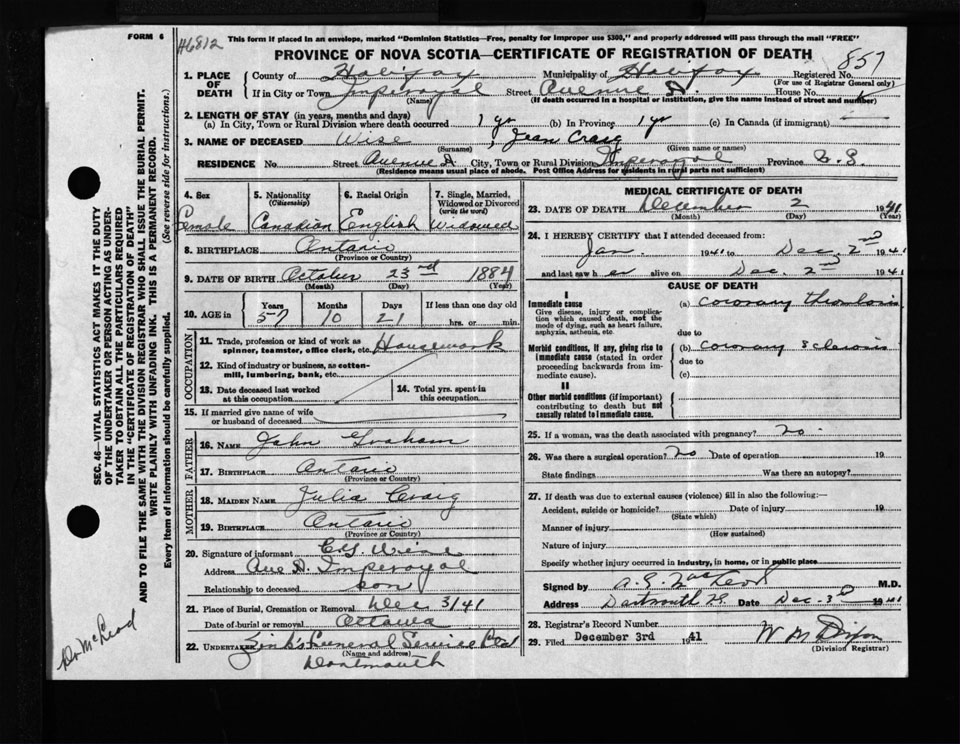 FORM 6
H6812
This form if placed in an envelope, marked "Dominion Statistics—Free, penalty for improper use $300," and properly addressed will pass through the mail "FREE"
PROVINCE OF NOVA SCOTIA—CERTIFICATE OF REGISTRATION OF DEATH
857
1. PLACE OF DEATH { County of Halifax Municipality of Halifax Registered No.
(For use of Registrar General only)
If in City or Town Imperoyal Street Avenue A. House No.
(Name) (If death occurred in a hospital or institution, give the name instead of street and number)
2. LENGTH OF STAY (in years, months and days)
(a) In City, Town or Rural Division where death occurred 1 yr (b) In Province 1 yr (c) In Canada (if immigrant) —
3. NAME OF DECEASED Wise, Jean Craig
(Surname) (Given name or names)
RESIDENCE No. Street Avenue A. City, Town or Rural Division Imperoyal Province N.S.
(Residence means usual place of abode. Post Office Address for residents in rural parts not sufficient)
4. Sex Female
5. Nationality (Citizenship) Canadian
6. Racial Origin English
7. Single, Married, Widowed or Divorced (write the word) Widowed
8. BIRTHPLACE Ontario
(Province or Country)
9. DATE OF BIRTH October 23rd 1884
(Month) (Day) (Year)
10. AGE in Years 57 Months 10 Days 21 If less than one day old hrs. or min.
OCCUPATION
11. Trade, profession or kind of work as spinner, teamster, office clerk, etc. Housework
12. Kind of industry or business, as cotton-mill, lumbering, bank, etc.
13. Date deceased last worked at this occupation
14. Total yrs. spent in this occupation
15. If married give name of wife or husband of deceased
FATHER
16. NAME John Graham
17. BIRTHPLACE Ontario
(Province or Country)
MOTHER
18. MAIDEN NAME Julia Craig
19. BIRTHPLACE Ontario
(Province or Country)
20. Signature of informant Wise
Address Ave A. Imperoyal
Relationship to deceased son
21. Place of Burial, Cremation or Removal Dec 3/41
Date of burial or removal Ottawa
22. UNDERTAKER Zink's Funeral Service Ltd
(Name and address)
Dartmouth
MEDICAL CERTIFICATE OF DEATH
23. DATE OF DEATH December 2 1941
(Month) (Day) (Year)
24. I HEREBY CERTIFY that I attended deceased from:
Jan. 1941 to Dec. 2nd 1941
and last saw her alive on Dec. 2nd 1941
CAUSE OF DEATH
I
Immediate cause (a) coronary thrombosis
Give disease, injury or complication which caused death, not the mode of dying, such as heart failure, asphyxia, asthenia, etc.
due to
Morbid conditions, if any, giving rise to immediate cause (stated in order proceeding backwards from immediate cause). (b) coronary sclerosis
due to
(c)
II
Other morbid conditions (if important) contributing to death but not causally related to immediate cause.
25. If a woman, was the death associated with pregnancy? no.
26. Was there a surgical operation? no Date of operation 19
State findings Was there an autopsy?
27. If death was due to external causes (violence) fill in also the following:—
Accident, suicide or homicide? Date of injury 19
(State which)
Manner of injury
(How sustained)
Nature of injury
Specify whether injury occurred in industry, in home, or in public place
Signed by A. G. MacLeod M.D.
Address Dartmouth N.S. Date Dec. 3rd 1941
28. Registrar's Record Number
29. Filed December 3rd 1941 W M Dixon
(Division Registrar)
SEC. 46—VITAL STATISTICS ACT MAKES IT THE DUTY
OF THE UNDERTAKER OR PERSON ACTING AS UNDER-
TAKER TO OBTAIN ALL THE PARTICULARS REQUIRED
IN THE "CERTIFICATE OF REGISTRATION OF DEATH"
AND TO FILE THE SAME WITH THE DIVISION REGISTRAR WHO SHALL ISSUE THE BURIAL PERMIT.
WRITE PLAINLY WITH UNFADING INK. THIS IS A PERMANENT RECORD.
Every item of Information should be carefully supplied. (See reverse side for instructions.)
Dr McLeod